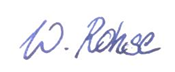 W. Rohse